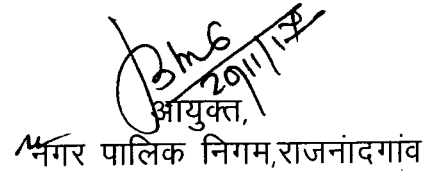 20/11/17
आयुक्त,
नगर पालिक निगम,राजनांदगांव